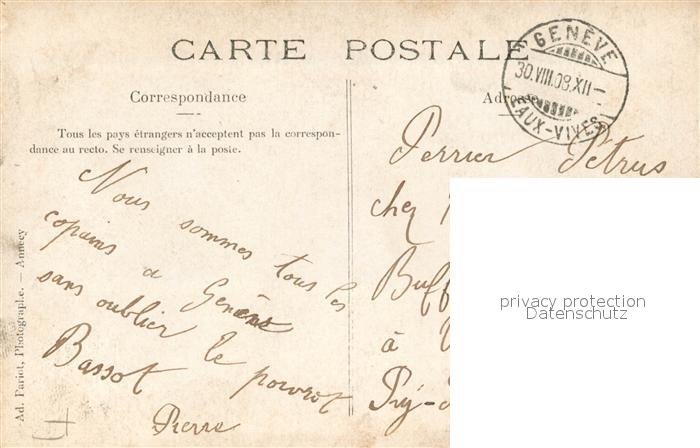 CARTE POSTALE
GENÈVE
30.VIII.08.XII-
EAUX-VIVES
Correspondance
Adresse
Tous les pays étrangers n'acceptent pas la correspon-
dance au recto. Se renseigner à la poste.
Nous sommes tous les
copains a Genève
sans oublier le
Bassot
Pierre
Perrier Pétrus
chez
Buff
à
Puy-
Ad. Pariot, Photographe. — Annecy
privacy protection
Datenschutz